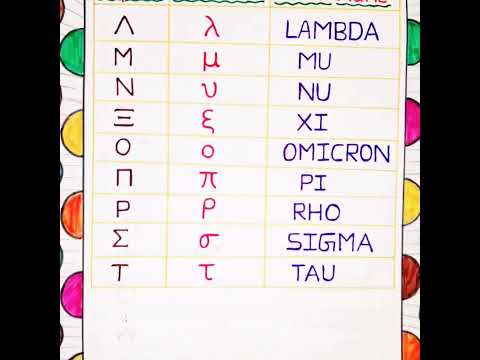 Λ λ LAMBDA
Μ μ MU
Ν υ NU
Ξ ξ XI
Ο ο OMICRON
Π π PI
Ρ ρ RHO
Σ σ SIGMA
Τ τ TAU